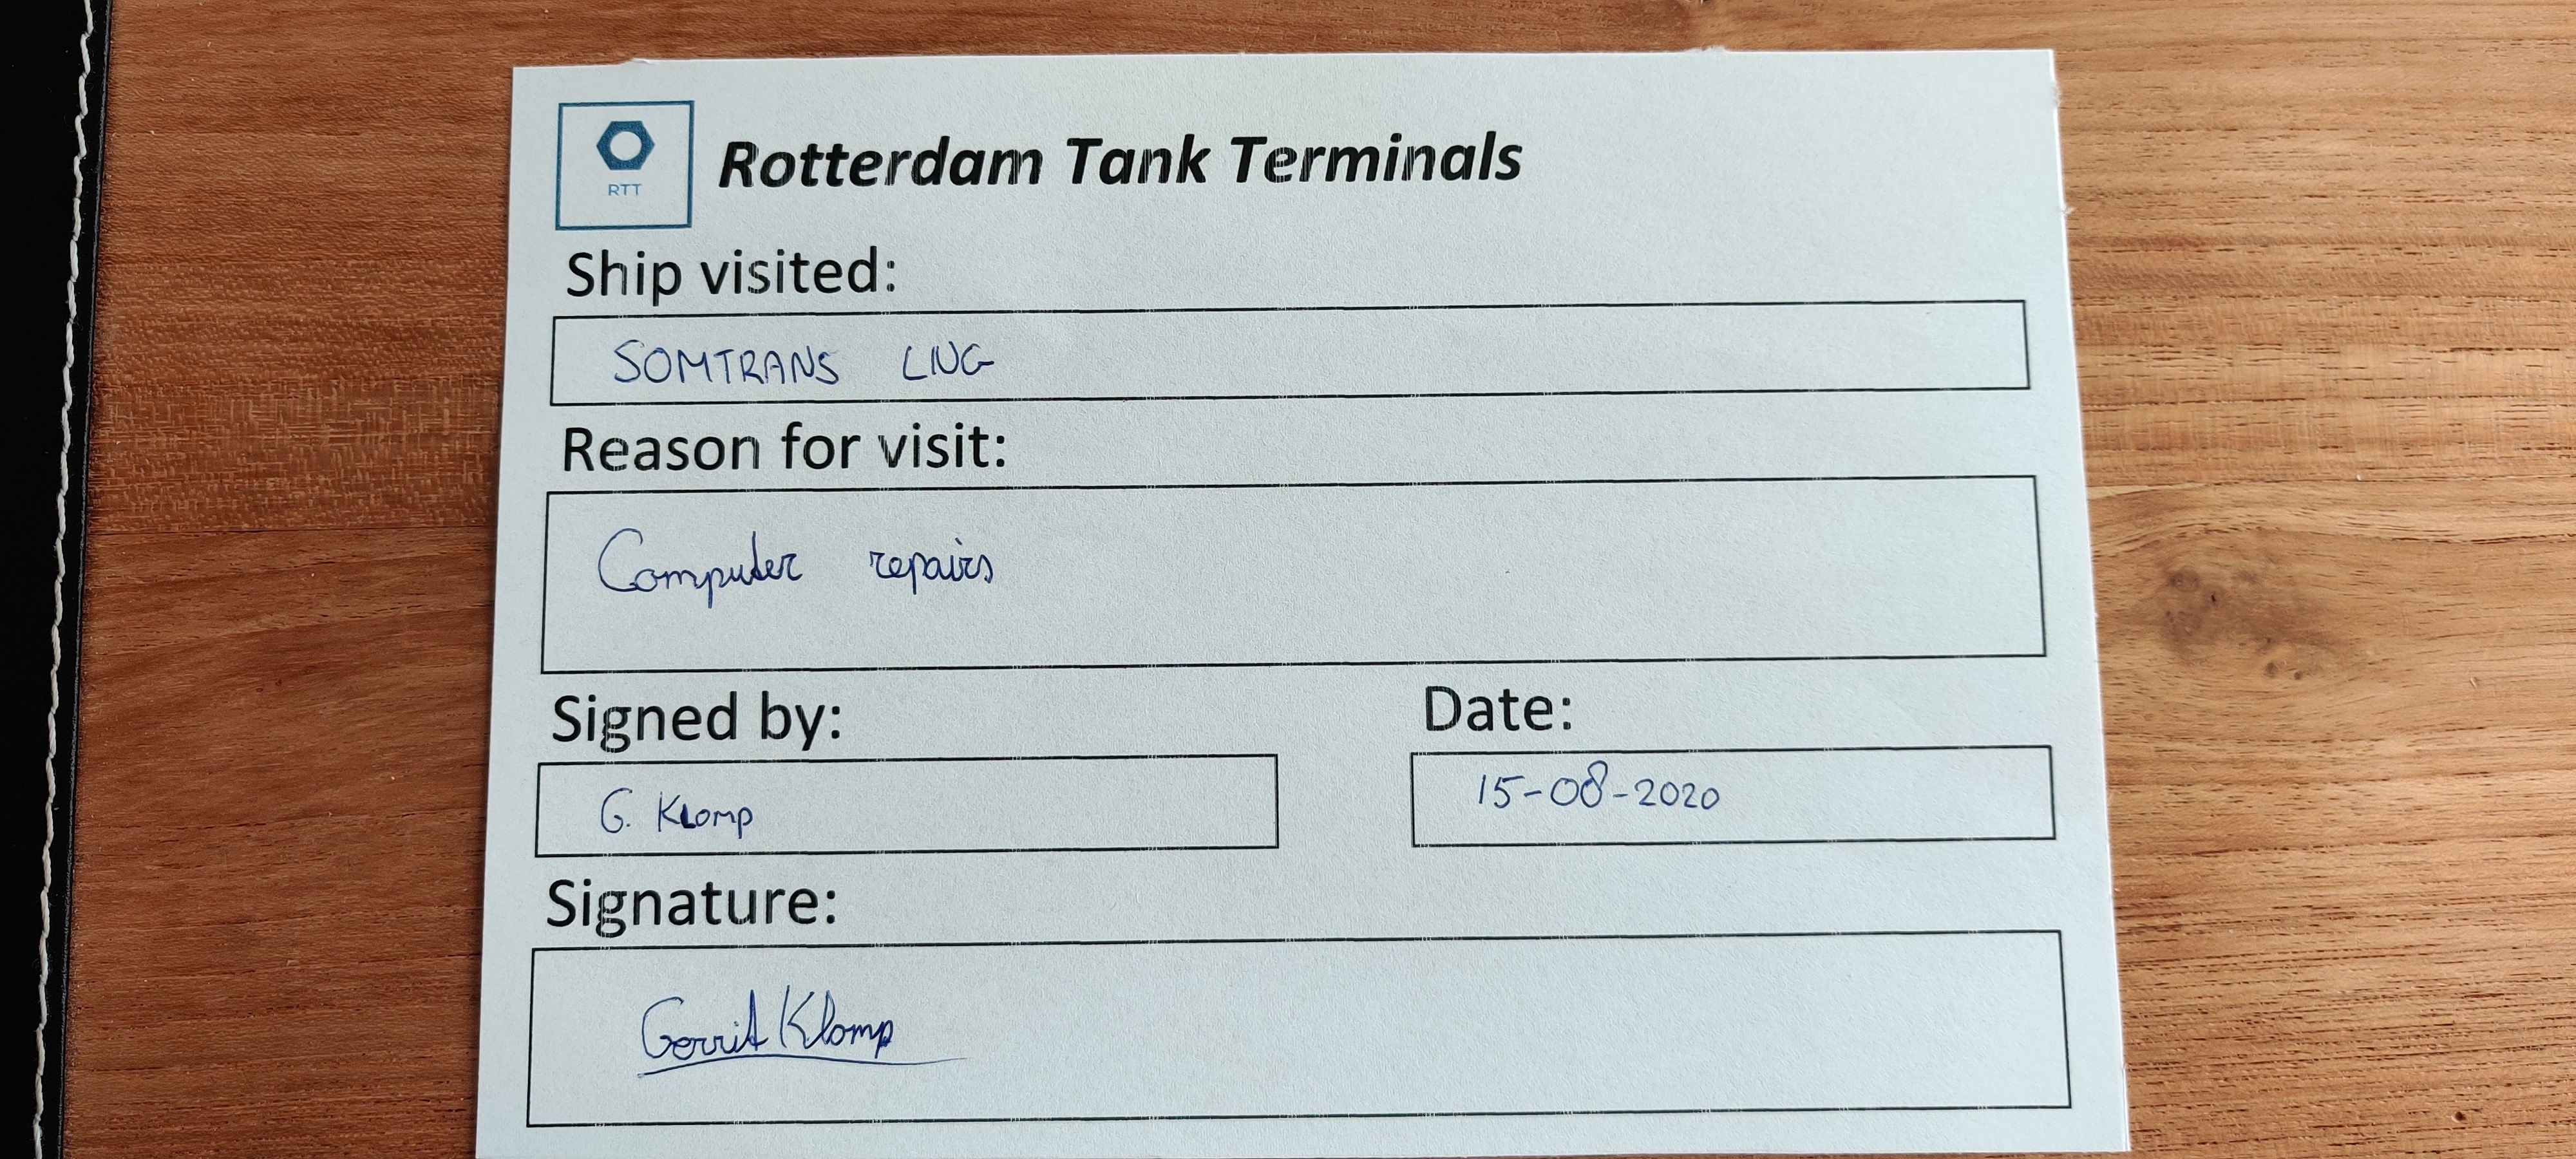 RTT
Rotterdam Tank Terminals
Ship visited:
SOMTRANS LNG
Reason for visit:
Computer repairs
Signed by:
G. Klomp
Date:
15-08-2020
Signature:
Gerrit Klomp